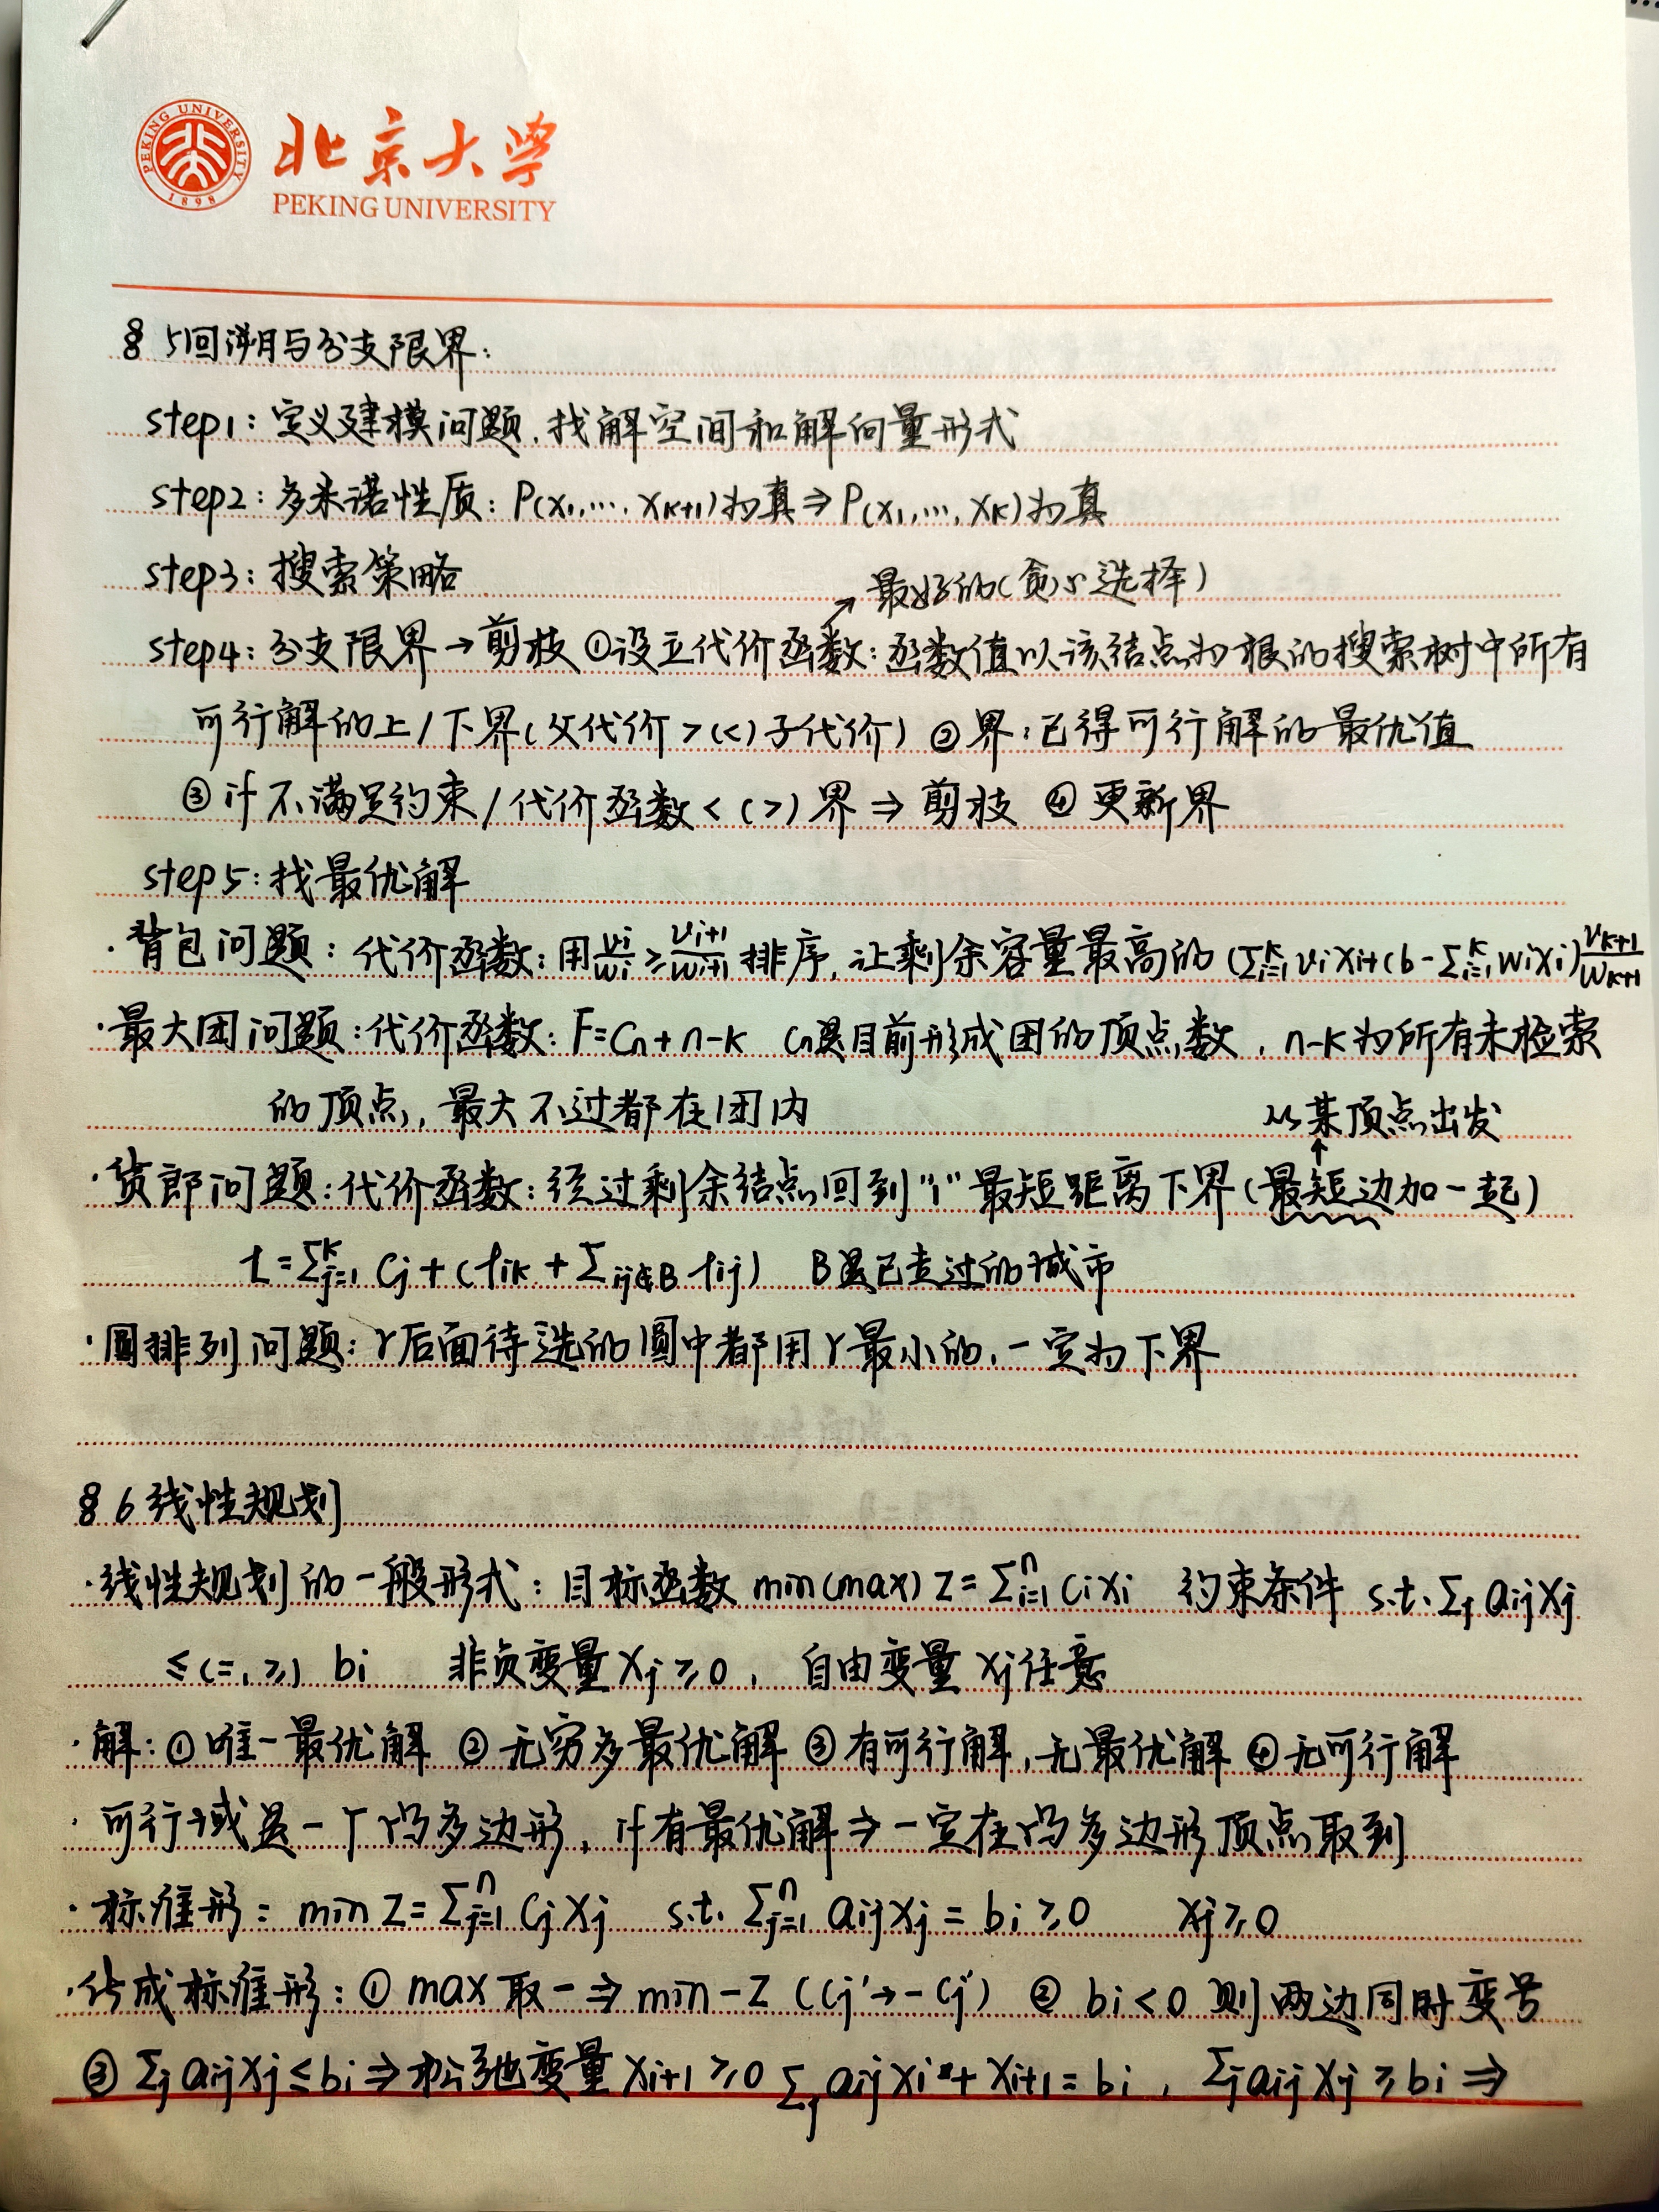 PEKING UNIVERSITY
1898
北京大学
PEKING UNIVERSITY
§5回溯与分支限界:
step1: 定义建模问题,找解空间和解向量形式
step2: 多米诺性质: P(x₁,…,xₖ₊₁)为真⇒P(x₁,…,xₖ)为真
step3: 搜索策略
↗最好的(贪心选择)
step4: 分支限界→剪枝 ①设立代价函数: 函数值以该结点为根的搜索树中所有
可行解的上/下界(父代价>(<)子代价) ②界:已得可行解的最优值
③if不满足约束/代价函数<(>)界⇒剪枝 ④更新界
step5: 找最优解
·背包问题: 代价函数: 用vᵢ/wᵢ≥vᵢ₊₁/wᵢ₊₁排序,让剩余容量最高的(Σᵢ₌₁ᵏvᵢxᵢ+(b-Σᵢ₌₁ᵏwᵢxᵢ)vₖ₊₁/wₖ₊₁
·最大团问题: 代价函数: F=Cₙ+n-k Cₙ是目前形成团的顶点数,n-k为所有未检索
的顶点,最大不过都在团内
从某顶点出发
↑
·货郎问题: 代价函数: 经过剩余结点回到"1"最短距离下界(最短边加一起)
L=Σⱼ₌₁ᵏ Cⱼ+(lᵢₖ+Σᵢⱼ∉B lᵢⱼ) B是已走过的城市
·圆排列问题: r后面待选的圆中都用r最小的,一定为下界
§6线性规划
·线性规划的一般形式: 目标函数 min(max) Z=Σᵢ₌₁ⁿ Cᵢxᵢ 约束条件 s.t. Σⱼ aᵢⱼxⱼ
≤(=,≥) bᵢ 非负变量xⱼ≥0, 自由变量xⱼ任意
·解: ①唯一最优解 ②无穷多最优解 ③有可行解,无最优解 ④无可行解
·可行域是一个凸多边形,if有最优解⇒一定在凸多边形顶点取到
·标准形: min Z=Σⱼ₌₁ⁿ Cⱼxⱼ s.t. Σⱼ₌₁ⁿ aᵢⱼxⱼ=bᵢ≥0 xⱼ≥0
·化成标准形: ①max取-⇒min-Z (Cⱼ'→-Cⱼ) ②bᵢ<0则两边同时变号
③Σⱼ aᵢⱼxⱼ≤bᵢ⇒松弛变量xᵢ₊₁≥0 Σⱼ aᵢⱼxᵢ+xᵢ₊₁=bᵢ, Σⱼ aᵢⱼxⱼ≥bᵢ⇒